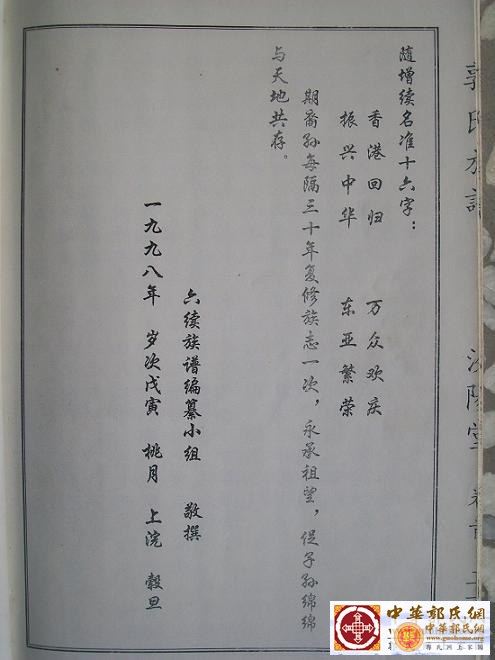 随增续名准十六字：
香港回归 万众欢庆
振兴中华 东亚繁荣
期裔孙每隔三十年复修族志一次，永承祖望，促子孙绵绵
与天地共存。
六续族谱编纂小组 敬撰
一九九八年 岁次戊寅 桃月 上浣 榖旦
郭氏族譜
汾陽堂
中華郭氏網
中華郭氏網
www.guoshong.org